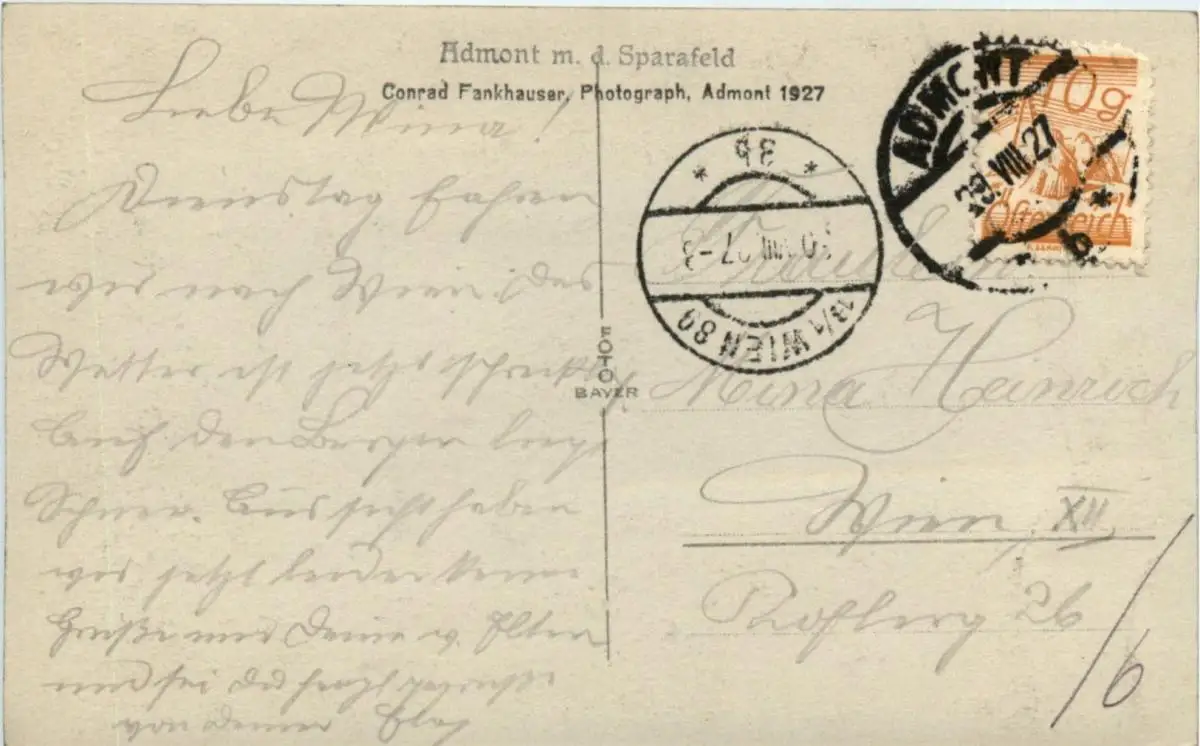 Admont m. d. Sparafeld
Conrad Fankhauser, Photograph, Admont 1927
Liebe Mina!
Dienstag fahren
wir nach Wien. Das
Wetter ist jetzt schreckl.
Auf den Bergen liegt
Schnee. Aussicht haben
wir jetzt leider keine
Grüße mir Deine v. Eltern
und sei Du herzl. gegrüßt
von Deiner
FOTO
BAYER
3b
30 VIII 27 -3
13/1 WIEN 89
ADMONT
29. VIII. 27
b
10g
Österreich
Fräulein
Mina Heinrich
Wien, XII
26
/6